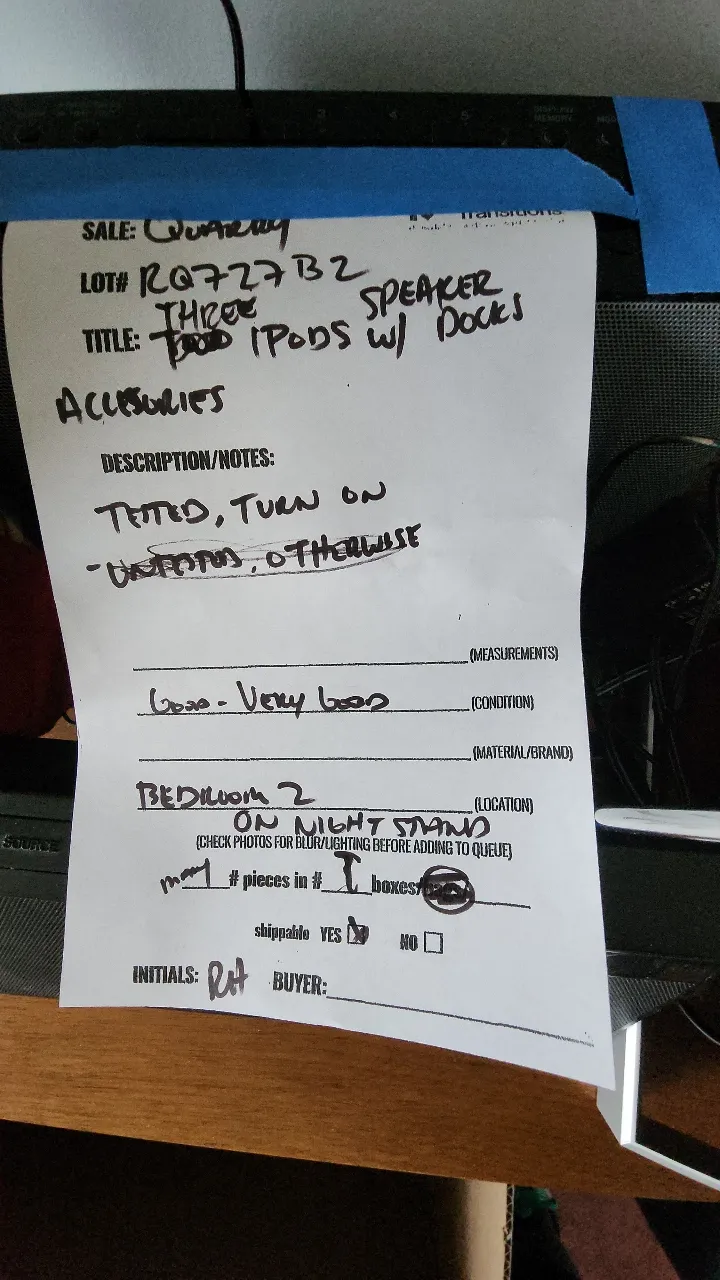 Transitions
SALE: Quarry
LOT# RQ727B2
THREE SPEAKER
TITLE: IPODS W/ DOCKS
ACCESORIES
DESCRIPTION/NOTES:
TESTED, TURN ON
- UNTESTED, OTHERWISE
(MEASUREMENTS)
GOOD - VERY GOOD (CONDITION)
(MATERIAL/BRAND)
BEDROOM 2 (LOCATION)
ON NIGHT STAND
(CHECK PHOTOS FOR BLUR/LIGHTING BEFORE ADDING TO QUEUE)
many # pieces in # 1 boxes/bags/
shippable YES NO
INITIALS: RH BUYER:
SOURCE